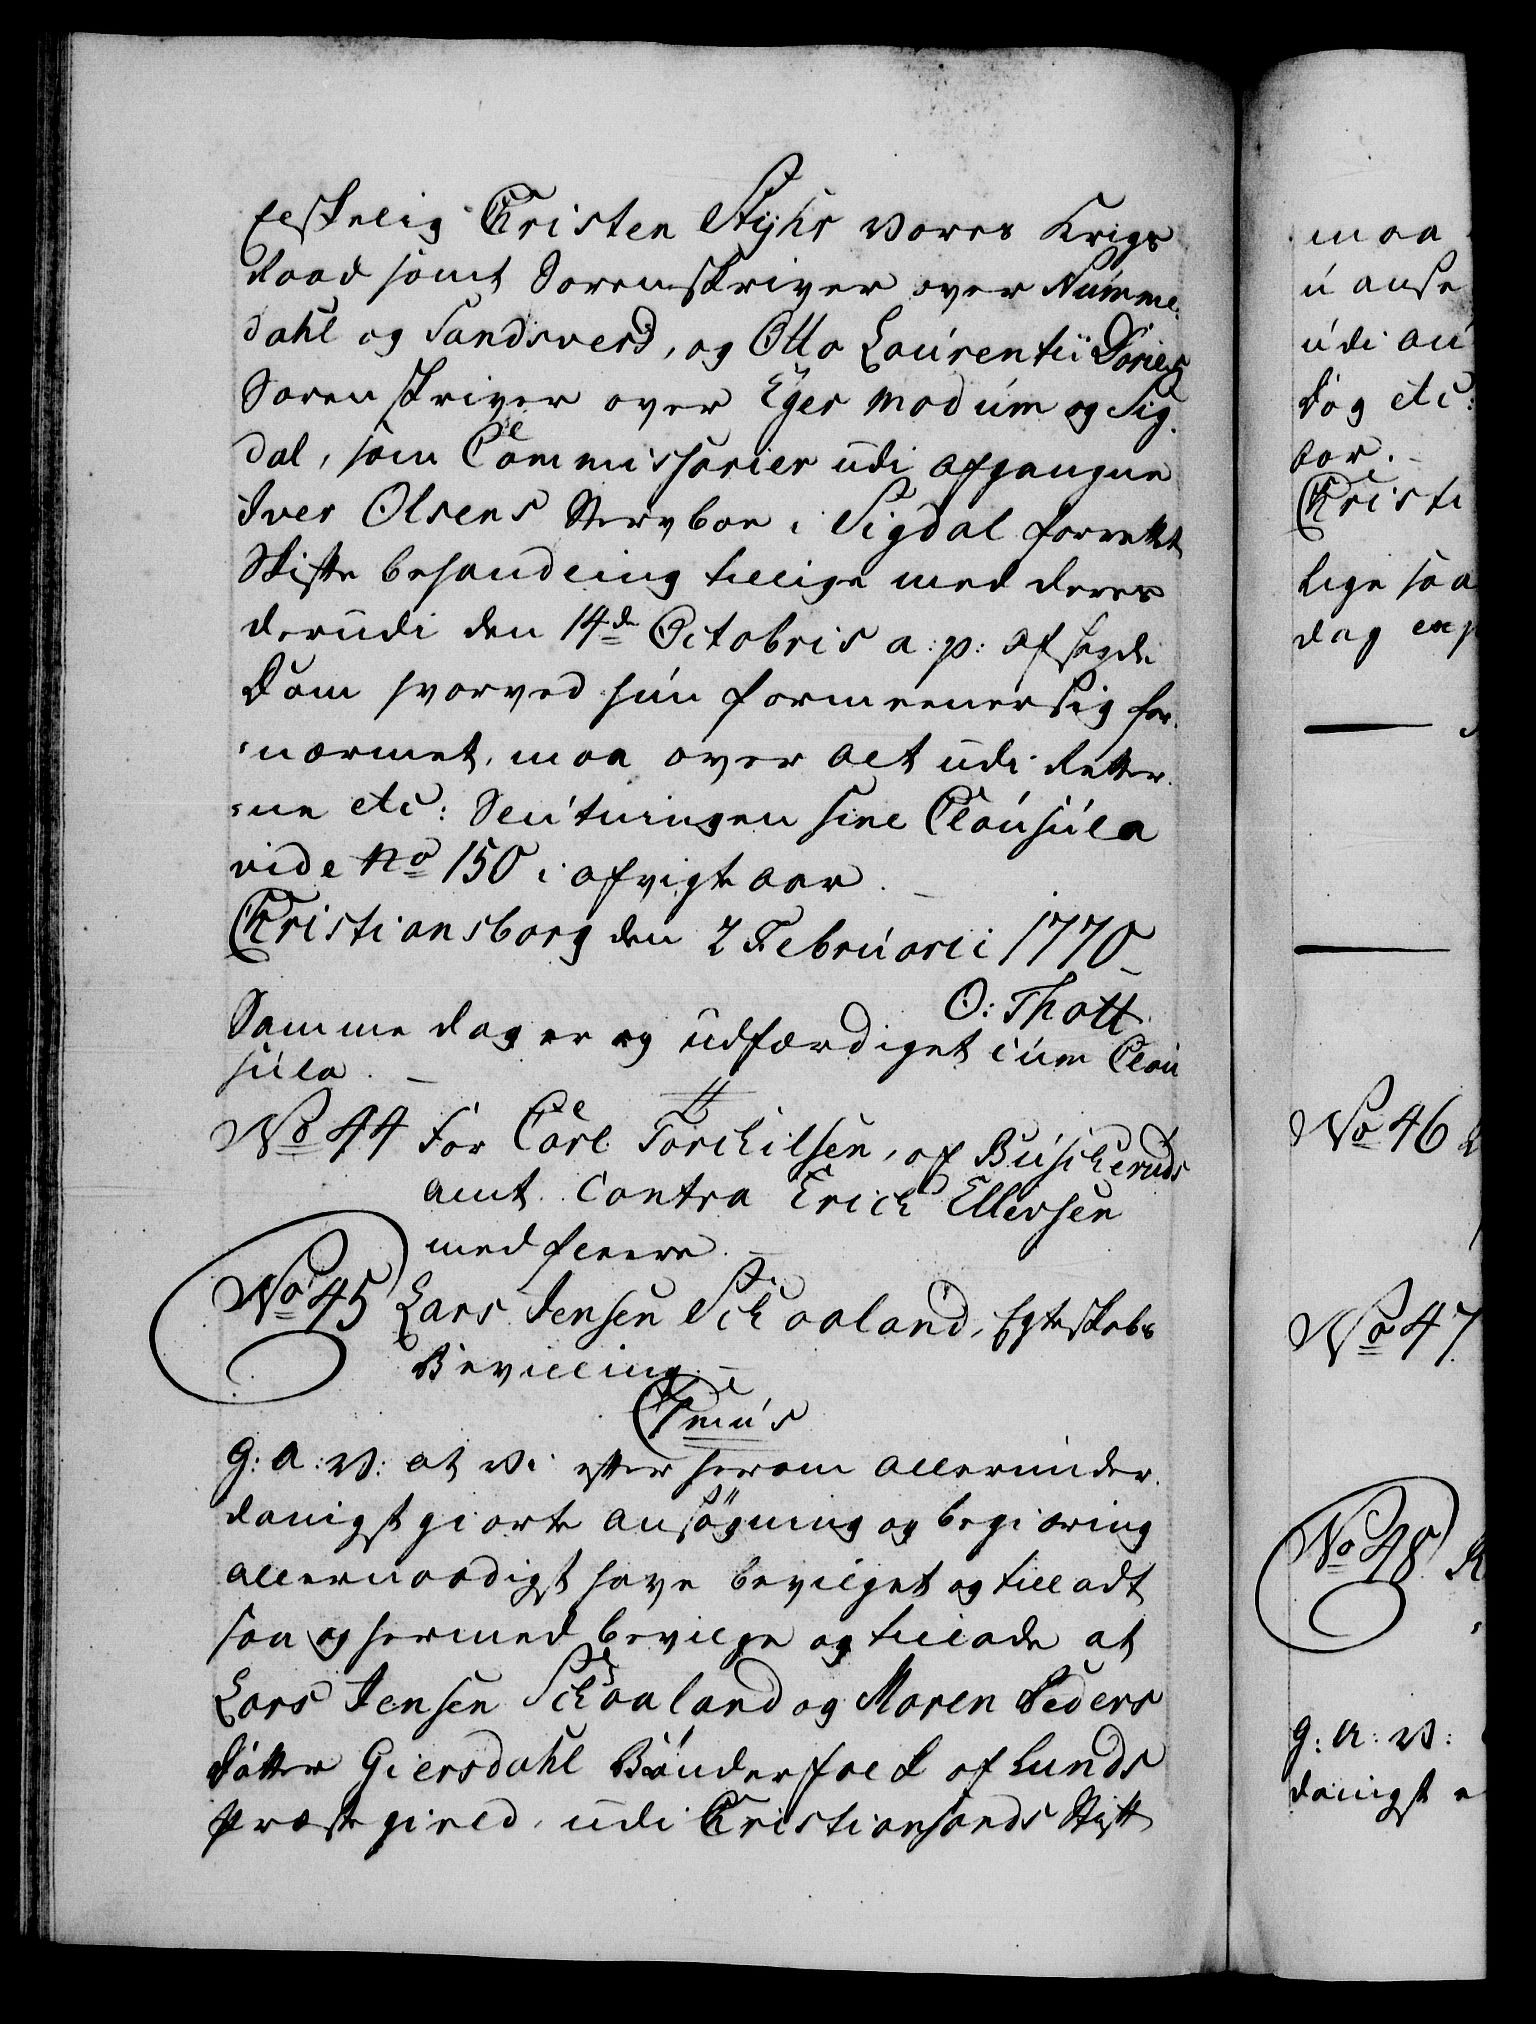 Elskelig Christen Stÿhr Vores Krigs
Raad samt Sorenskriver over Numme-
dahl og Sandsverd, og Otto Laurentii
Sorenskriver over Eger Modum og Sig-
dal, som Commissarier udi afgangne
Iver Olsens Stervboe i Sigdal forrettet
Skifte behandling tillige med deres
derudi den 14de Octobris a: p: afsagde
Dom hvorved hun formeener sig for-
nærmet, maa over alt udi Retter-
ne etc: Slutningen sine Clausula
vide No 150 i afvigte Aar. -
Christiansborg den 2 Februarii 1770
O: Thott.
Samme Dag er og udfærdiget cum Clau
sula. -
No 44 For Carl Torchilsen, af Buscheruds
Amt. Contra Erich Ellevsen
med fleere. -
No 45 Lars Jensen Schaaland, Egteskabs
Bevilling. -
G: A: V: at Vi efter herom allerunder-
danigst giorte Ansøgning og begiæring
allernaadigst have bevilget og tilladt
saa og hermed bevilge og tillade at
Lars Jensen Schaaland og Maren Peders
Dotter Giersdahl Bønderfolck af Lunds
Præstegield, udi Christiansands Stift
maa
u anse
udi au
Dag etc:
aar. -
Christi
Lige saa
dag exp
No 46
No 47
No 48
G: A: V:
danigst